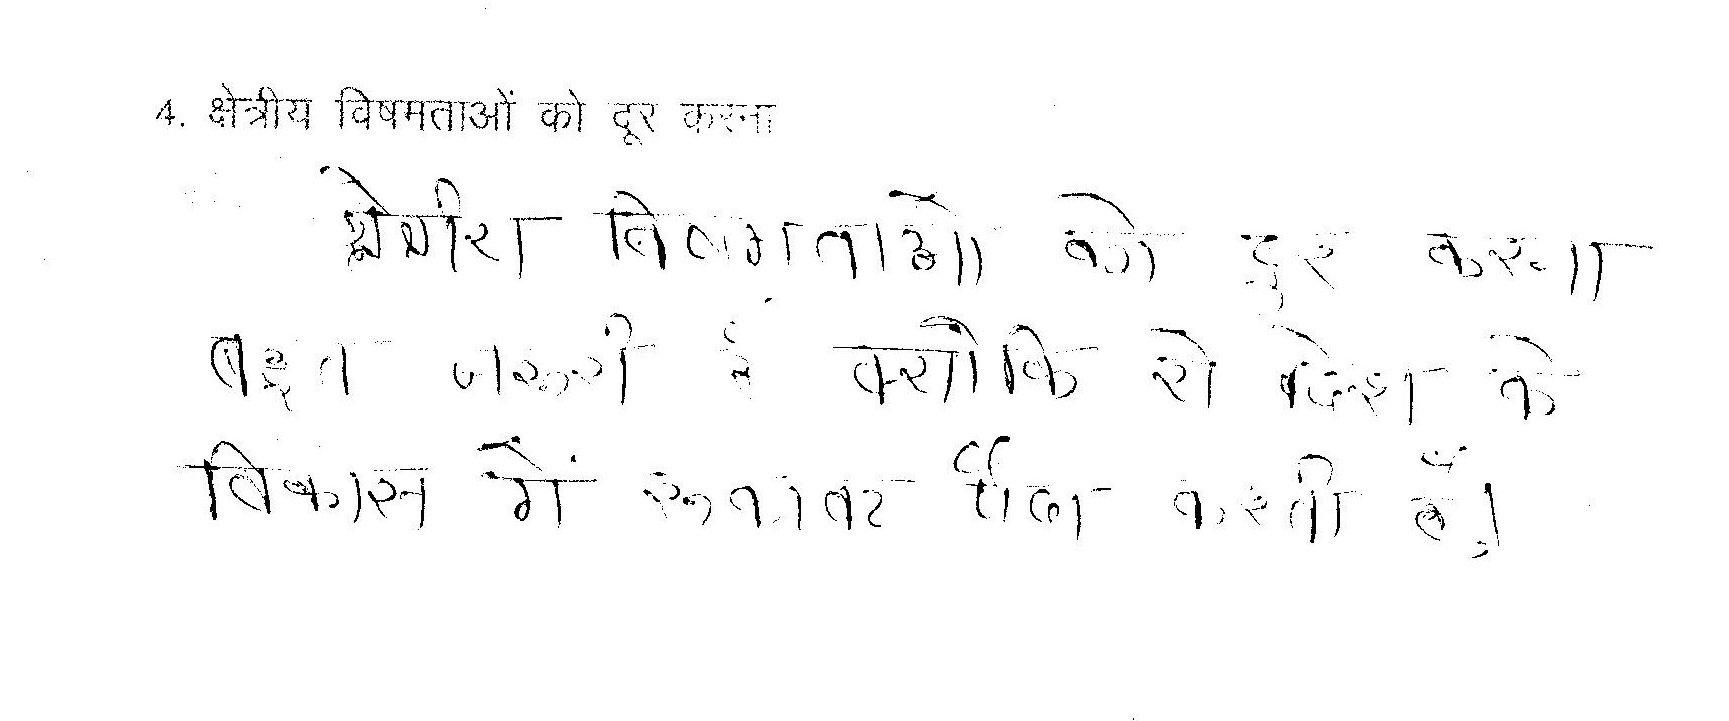 4. क्षेत्रीय विषमताओं को दूर करना
क्षेत्रीय विषमताओं को दुर करना
बहुत जरूरी है क्योंकि ये देश के
विकास में रूकावट पैदा करती हैं।